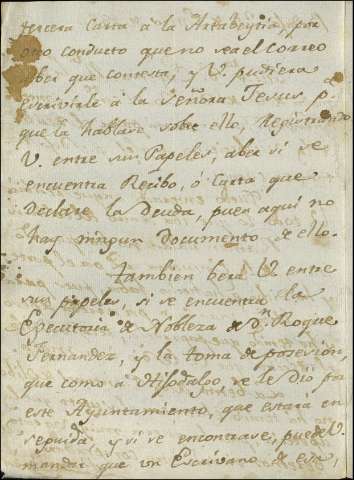 tercera Carta à la Artabeytia, por
otro conducto que no sea el correo
aber que contesta, y V. pudiera
escrivirle à la Señora Jesus p.ª
que la hablase sobre ello, Registrando
V. entre sus Papeles, aber si se
encuentra Recibo, ó Carta que
Declare la Deuda, pues aqui no
hay ningun Documento de ello.
tambien berà V. entre
sus papeles, si se encuentra la
Executoria de Nobleza de D.n Roque
Fernandez, y la toma de posesion,
que como à Hijodalgo se le Dió por
este Ayuntamiento, que estará en
seguida, y si se encontrase, puede V.
mandar que un Escrivano de esa,